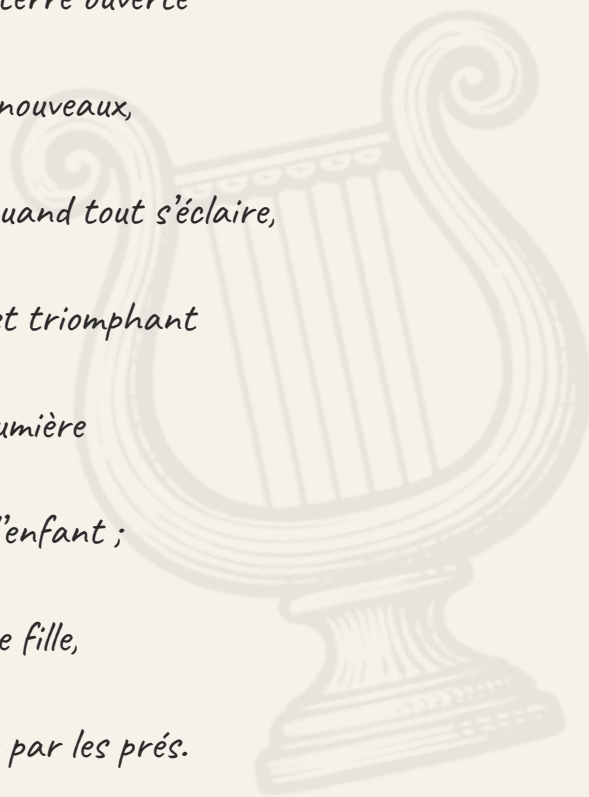 terre ouverte
nouveaux,
uand tout s’éclaire,
et triomphant
umière
l’enfant ;
e fille,
par les prés.